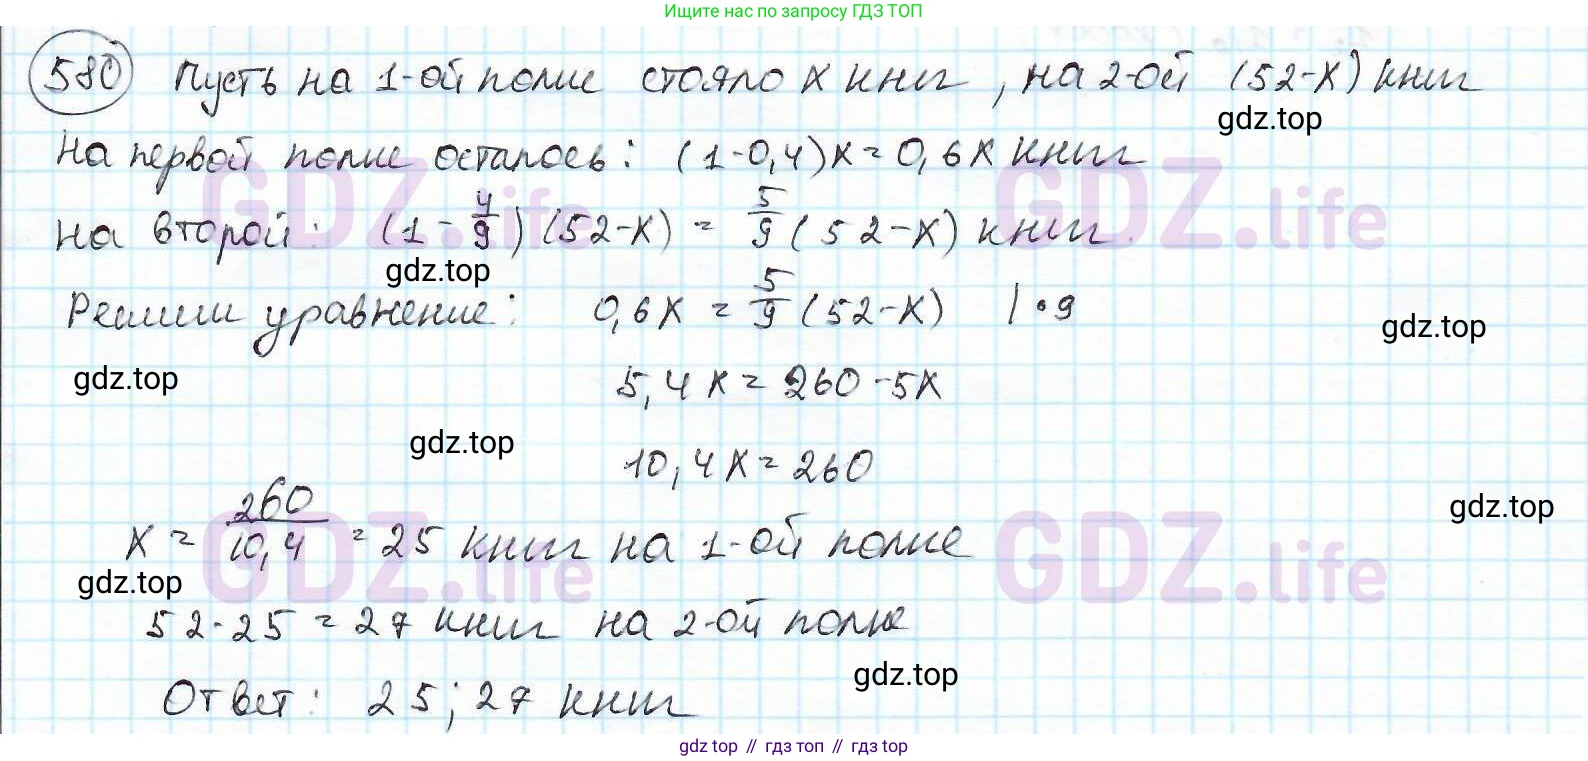 Ищите нас по запросу ГДЗ ТОП
580 Пусть на 1-ой полке стояло x книг, на 2-ой (52-x) книг
gdz.top
На первой полке осталось: (1-0,4)x = 0,6x книг
GDZ.life GDZ.life
На второй: (1 - 4/9)(52-x) = 5/9 (52-x) книг
gdz.top
Решим уравнение: 0,6x = 5/9 (52-x) | •9
gdz.top
gdz.top
5,4x = 260-5x
gdz.top
10,4x = 260
gdz.top
x = 260/10,4 = 25 книг на 1-ой полке
GDZ.life GDZ.life
gdz.top
52-25 = 27 книг на 2-ой полке
gdz.top
Ответ: 25; 27 книг
gdz top // гдз топ // gdz top